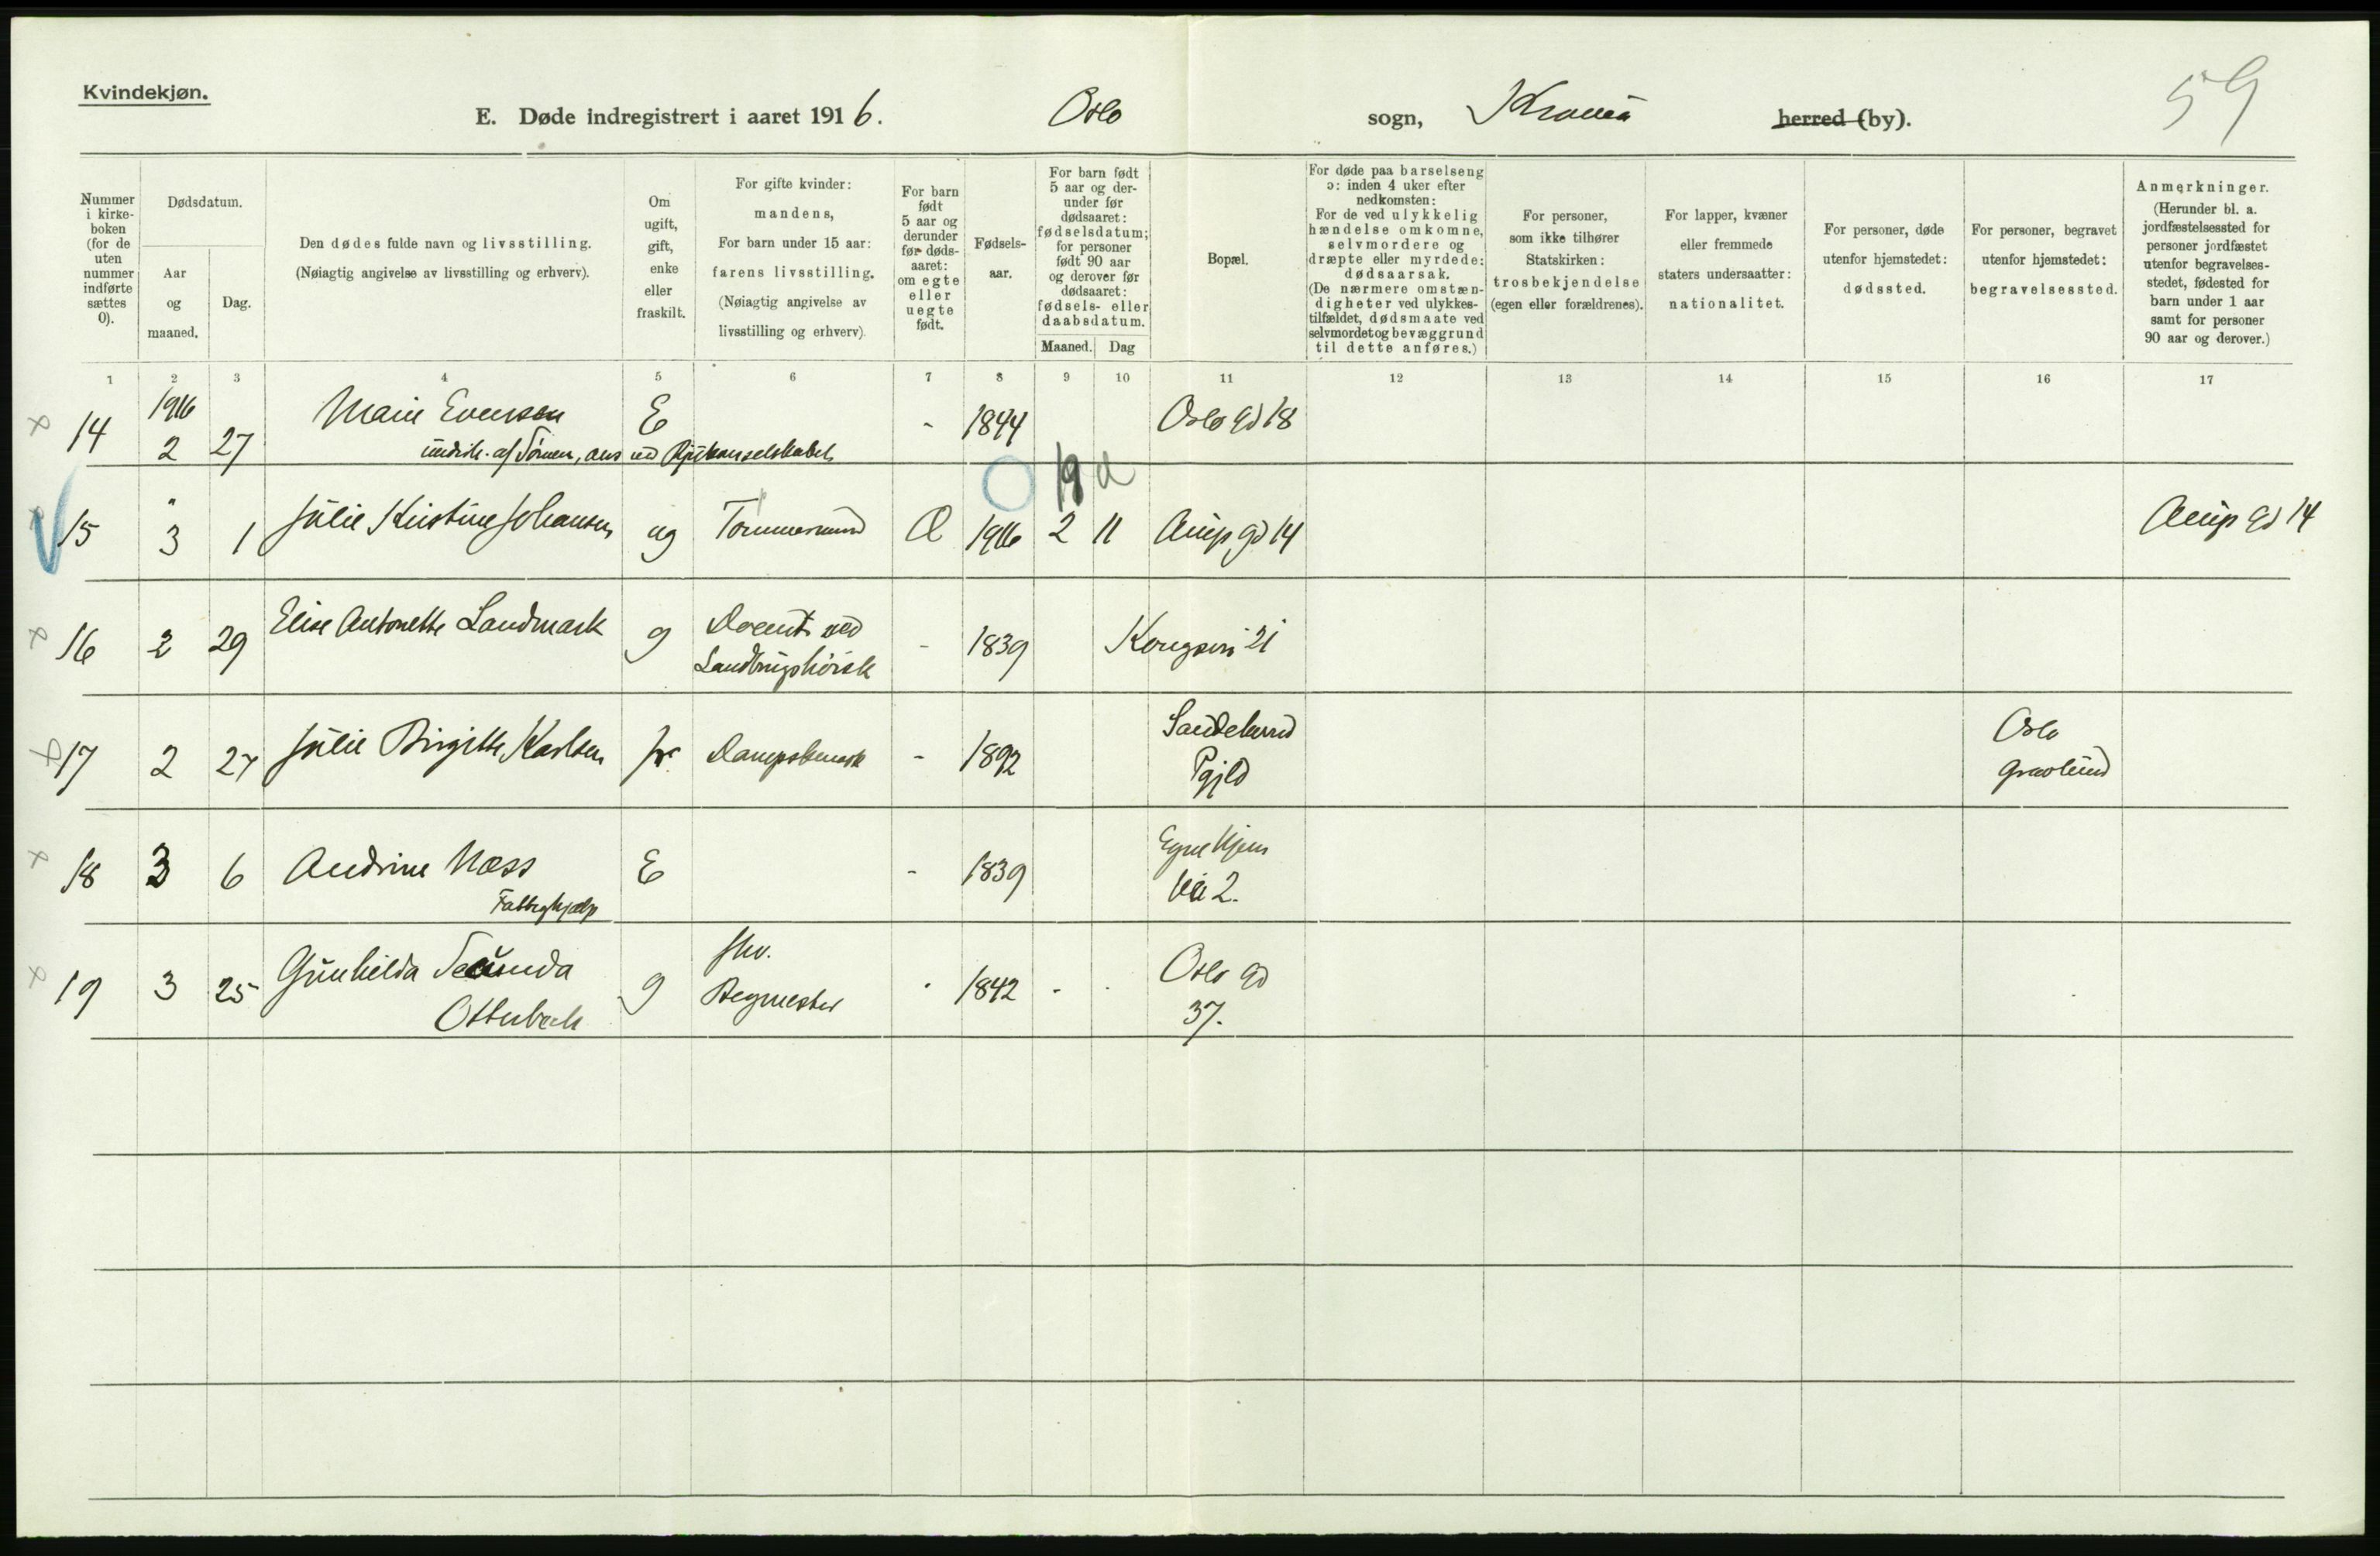 Kvindekjøn.
E. Døde indregistrert i aaret 1916. Oslo sogn, herred (by).
59
Nummer i kirke-boken (for de uten nummer indførte sættes 0).
Dødsdatum.
Aar og maaned.
Dag.
Den dødes fulde navn og livsstilling.
(Nøiagtig angivelse av livsstilling og erhverv).
Om ugift, gift, enke eller fraskilt.
For gifte kvinder: mandens,
For barn under 15 aar: farens livsstilling.
(Nøiagtig angivelse av livsstilling og erhverv).
For barn født 5 aar og derunder før døds-aaret: om egte eller uegte født.
Fødsels-aar.
For barn født 5 aar og der-under før dødsaaret: fødselsdatum; for personer født 90 aar og derover før dødsaaret: fødsels- eller daabsdatum.
Maaned.
Dag
Bopæl.
For døde paa barselseng ɔ: inden 4 uker efter nedkomsten:
For de ved ulykkelig hændelse omkomne, selvmordere og dræpte eller myrdede: dødsaarsak.
(De nærmere omstæn-digheter ved ulykkes-tilfældet, dødsmaate ved selvmordet og bevæggrund til dette anføres.)
For personer, som ikke tilhører Statskirken: trosbekjendelse (egen eller forældrenes).
For lapper, kvæner eller fremmede staters undersaatter: nationalitet.
For personer, døde utenfor hjemstedet: dødssted.
For personer, begravet utenfor hjemstedet: begravelsessted.
Anmerkninger.
(Herunder bl. a. jordfæstelsessted for personer jordfæstet utenfor begravelses-stedet, fødested for barn under 1 aar samt for personer 90 aar og derover.)
1 2 3 4 5 6 7 8 9 10 11 12 13 14 15 16 17
14 1916 2 27 Marie Evensen E - 1844 Oslo gd 18
19 d
15 " 3 1 Julie Kristine Johansen ug Tømmermand 1916 2 11 gd 14 gd 14
16 2 29 Elise Antonette Landmark g Docent ved - 1839 21
Landbrugshøisk
17 2 27 Julie Birgitte Karlsen - 1892 Oslo
Pgjld Gravlund
18 3 6 Andrine Næss E - 1839 Egne Hjem
Fattighjælp Vei 2.
19 3 25 Gunhilda Secunda g fhv. 1842 - Oslo gd
Otterbech 37.